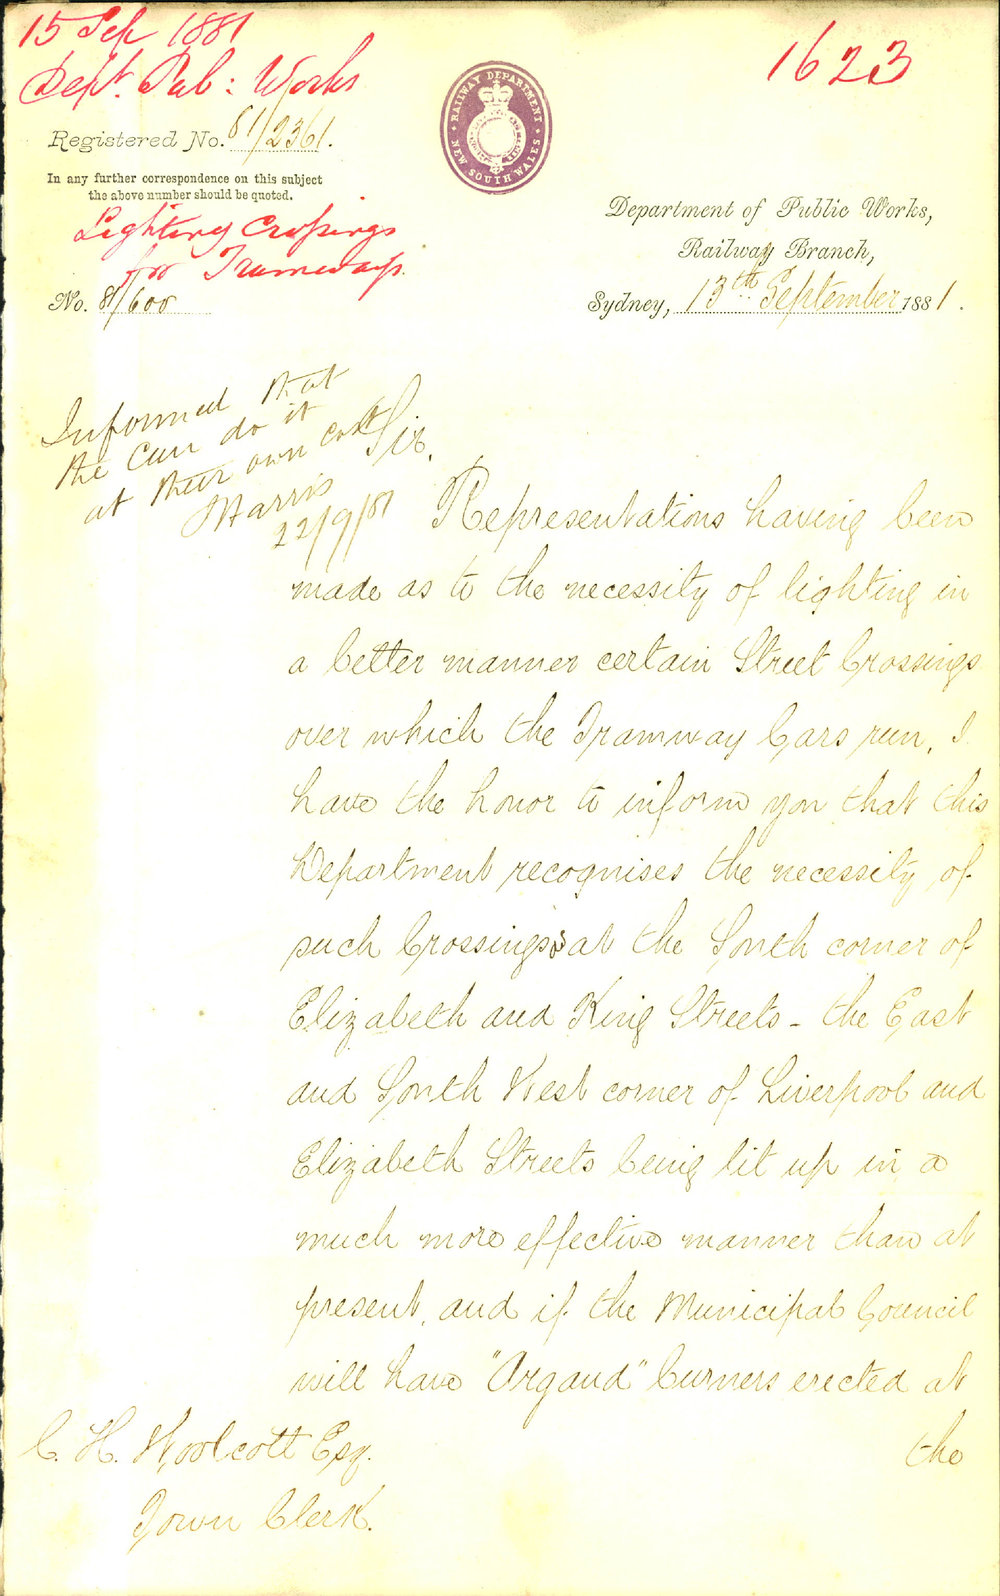 15 Sep 1881
Dept. Pub: Works
1623
RAILWAY DEPARTMENT
NEW SOUTH WALES
Registered No. 81/2361.
In any further correspondence on this subject
the above number should be quoted.
Lighting Crossings
for Tramways.
No. 81/600
Department of Public Works,
Railway Branch,
Sydney, 13th September 1881.
Informed that
the can do it
at their own cost
Marris
22/9/81
Sir,
Representations having been
made as to the necessity of lighting in
a better manner certain Street Crossings
over which the Tramway Cars run, I
have the honor to inform you that this
Department recognises the necessity of
such Crossings at the South corner of
Elizabeth and King Streets - the East
and South West corner of Liverpool and
Elizabeth Streets being lit up in a
much more effective manner than at
present, and if the Municipal Council
will have "Argand" burners erected at
the
C. H. Woolcott Esq.
Town Clerk.